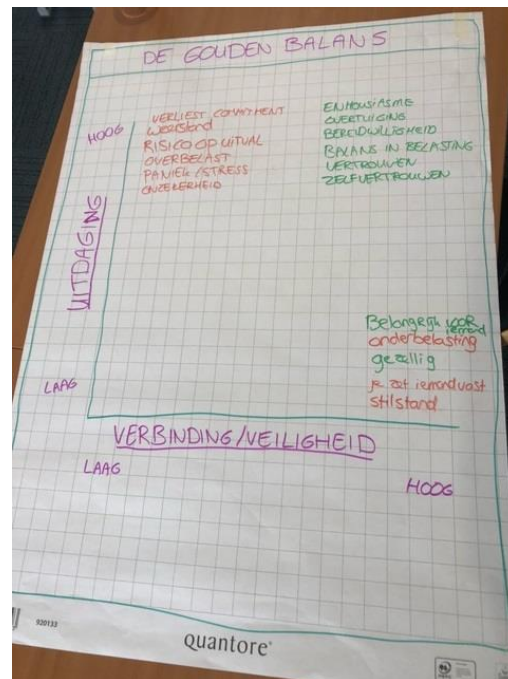 DE GOUDEN BALANS
HOOG
VERLIEST COMMITMENT
weerstand
RISICO OP UITVAL
OVERBELAST
PANIEK/STRESS
ONZEKERHEID
ENHOUSIASME
OVERTUIGING
BEREIDWILLIGHEID
BALANS IN BELASTING
VERTROUWEN
ZELFVERTROUWEN
UITDAGING
Belangrijk voor iemand
onderbelasting
gezellig
je zet iemand vast
stilstand
LAAG
VERBINDING/VEILIGHEID
LAAG
HOOG
920133
quantore